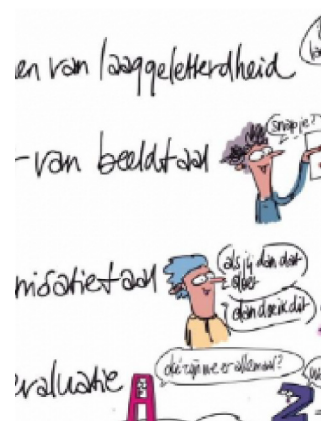 en van laaggeletterdheid
-van beeldtaal
snapje?
nisatietaal
als jij dan dat
doet
dan doe ik dit
evaluatie
die zijn we er allemaal?
A
Z